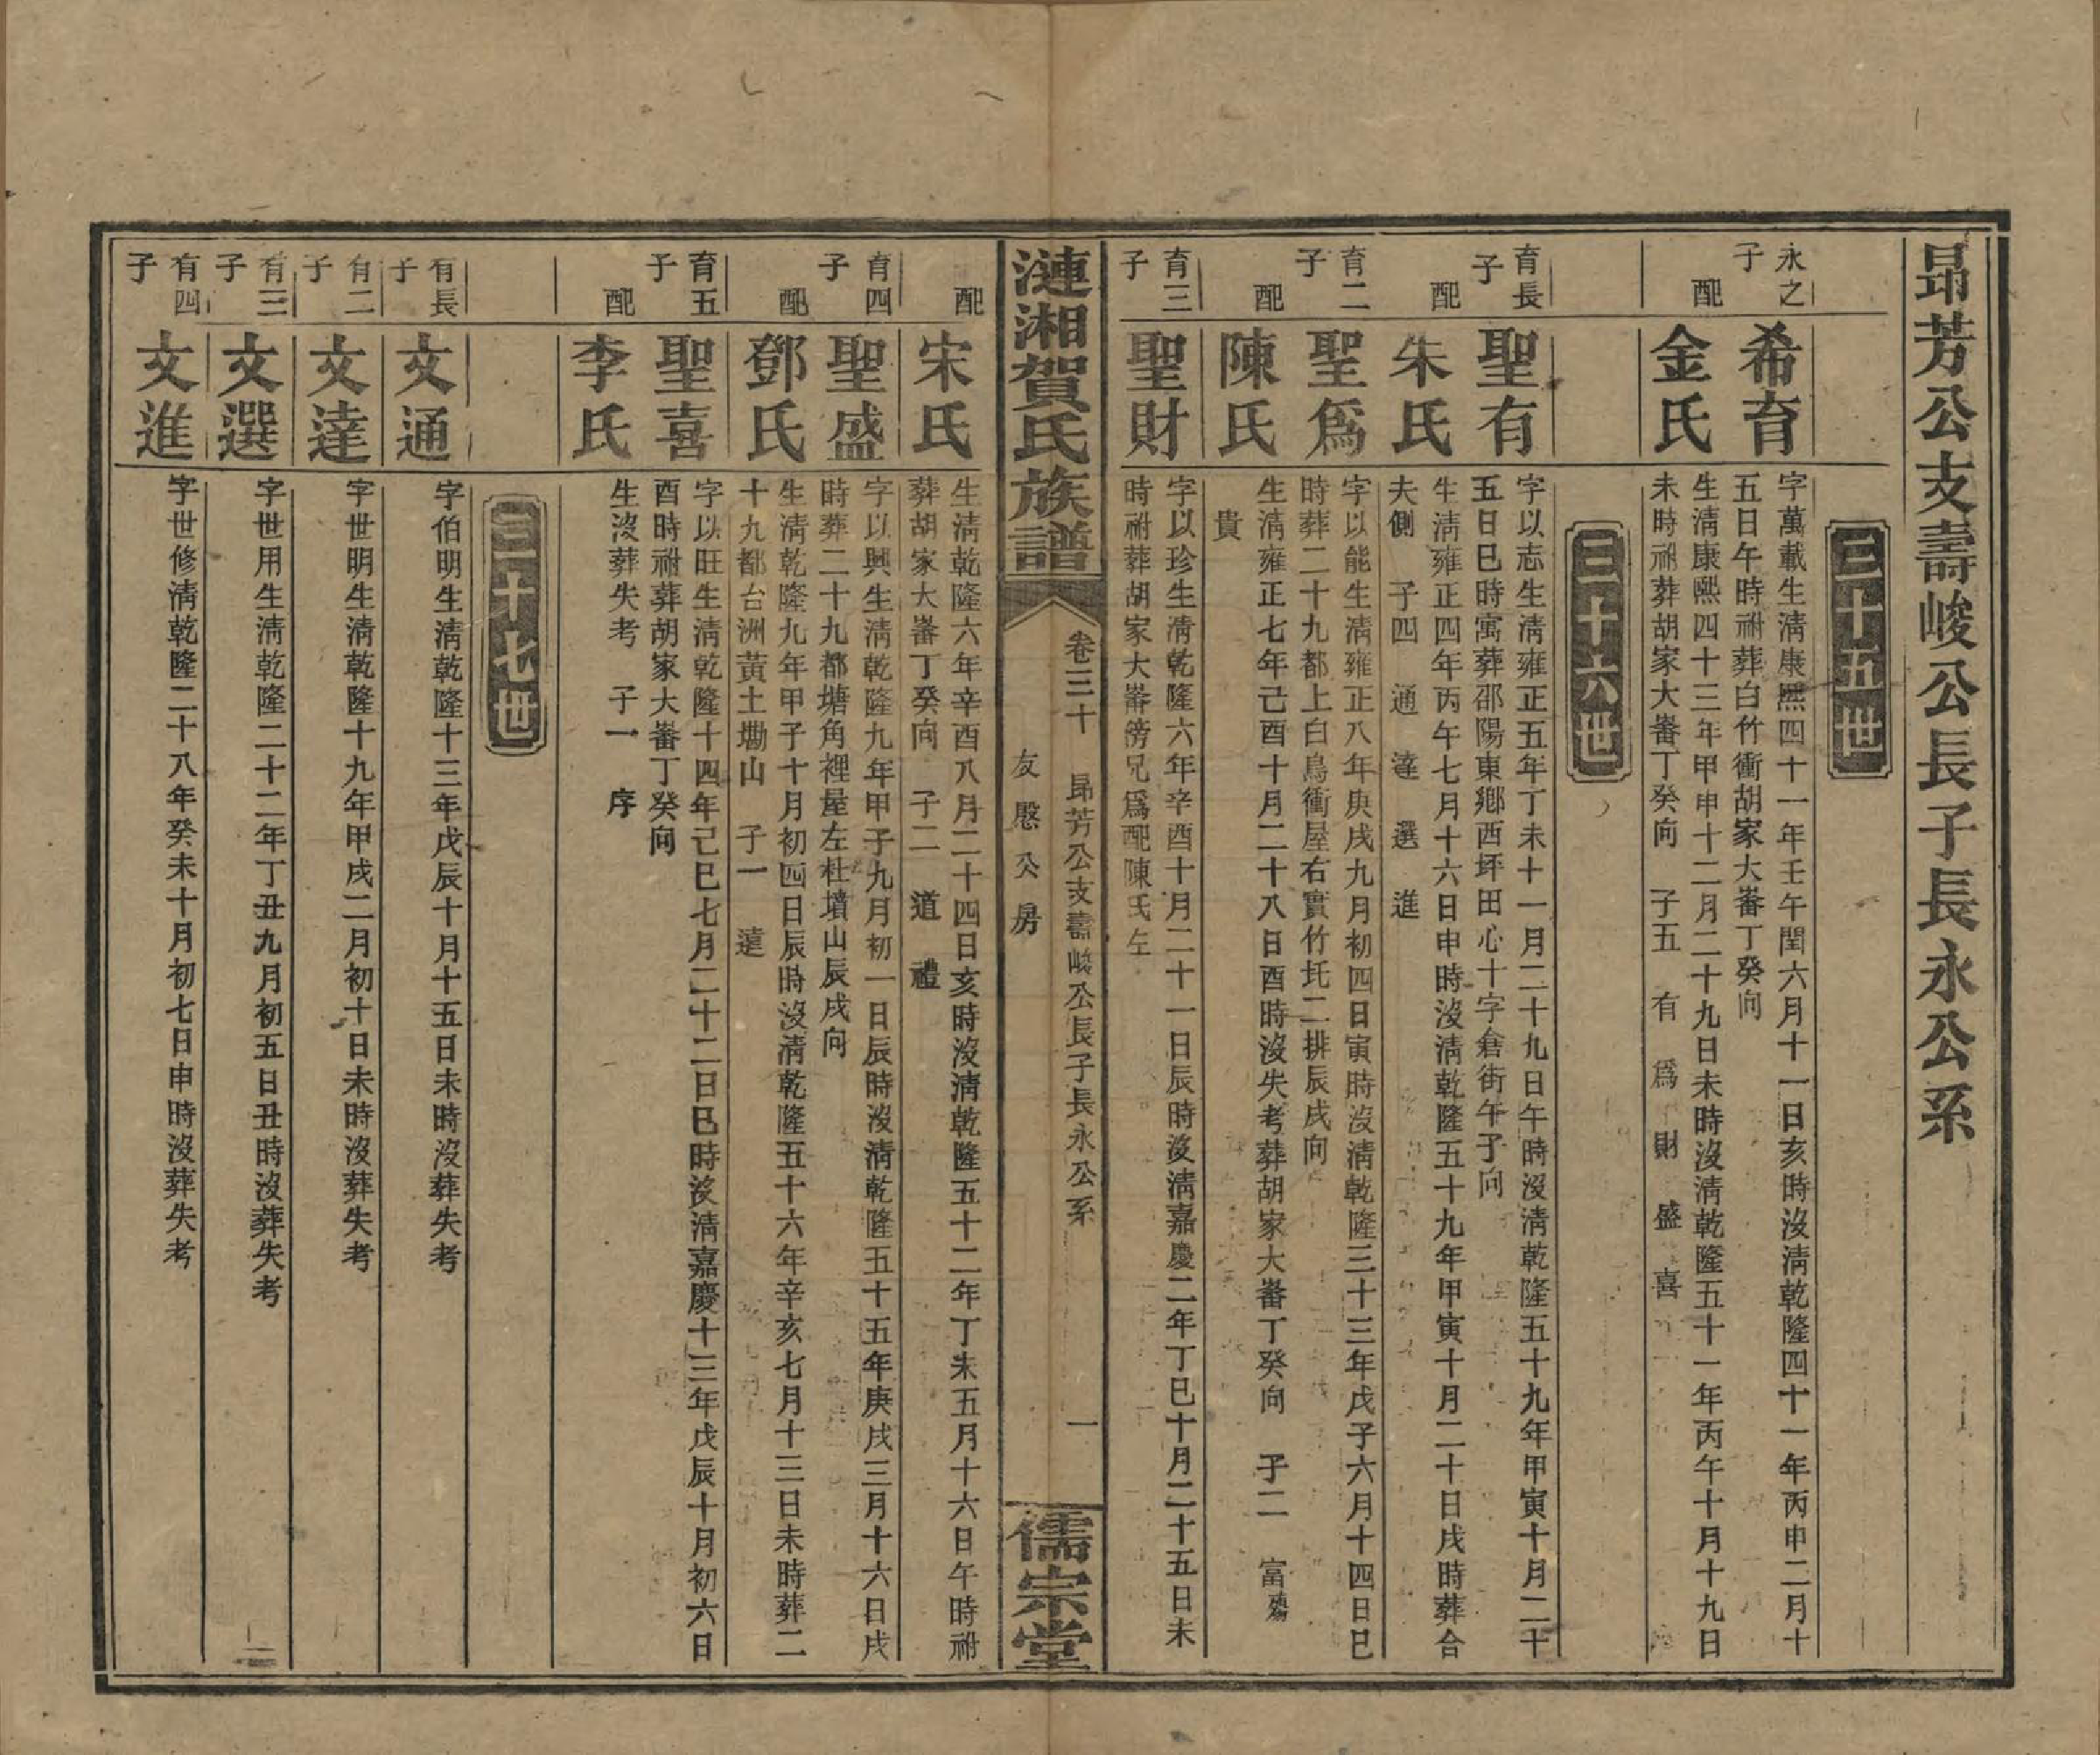 昻芳公支壽峻公長子長永公系
三十五世
永之子
希育
字萬載生淸康熙四十一年壬午閏六月十一日亥時沒淸乾隆四十一年丙申二月十
五日午時祔葬白竹衝胡家大㟥丁癸向
配
金氏
生淸康熙四十三年甲申十二月二十九日未時沒淸乾隆五十一年丙午十月十九日
未時祔葬胡家大㟥丁癸向 子五 有 爲 財 盛 喜
三十六世
育長子
聖有
字以志生淸雍正五年丁未十一月二十九日午時沒淸乾隆五十九年甲寅十月二十
五日巳時寓葬邵陽東鄕西坪田心十字倉街午子向
配
朱氏
生淸雍正四年丙午七月十六日申時沒淸乾隆五十九年甲寅十月二十日戌時葬合
夫側 子四 通 達 選 進
育二子
聖爲
字以能生淸雍正八年庚戌九月初四日寅時沒淸乾隆三十三年戊子六月十四日巳
時葬二十九都上白鳥衝屋右實竹圫二排辰戌向
配
陳氏
生淸雍正七年己酉十月二十八日酉時沒失考葬胡家大㟥丁癸向 子二 富殤
貴
育三子
聖財
字以珍生淸乾隆六年辛酉十月二十一日辰時沒淸嘉慶二年丁巳十月二十五日未
時祔葬胡家大㟥傍兄爲配陳氏左
漣湘賀氏族譜
卷三十 昻芳公支壽峻公長子長永公系 一
友愍公房
儒宗堂
配
宋氏
生淸乾隆六年辛酉八月二十四日亥時沒淸乾隆五十二年丁未五月十六日午時祔
葬胡家大㟥丁癸向 子二 道 禮
育四子
聖盛
字以興生淸乾隆九年甲子九月初一日辰時沒淸乾隆五十五年庚戌三月十六日戌
時葬二十九都塘角裡屋左杜墳山辰戌向
配
鄧氏
生淸乾隆九年甲子十月初四日辰時沒淸乾隆五十六年辛亥七月十三日未時葬二
十九都台洲黃土坳山 子一 遠
育五子
聖喜
字以旺生淸乾隆十四年己巳七月二十二日巳時沒淸嘉慶十三年戊辰十月初六日
酉時祔葬胡家大㟥丁癸向
配
李氏
生沒葬失考 子一 序
三十七世
有長子
文通
字伯明生淸乾隆十三年戊辰十月十五日未時沒葬失考
有二子
文達
字世明生淸乾隆十九年甲戌二月初十日未時沒葬失考
有三子
文選
字世用生淸乾隆二十二年丁丑九月初五日丑時沒葬失考
有四子
文進
字世修淸乾隆二十八年癸未十月初七日申時沒葬失考